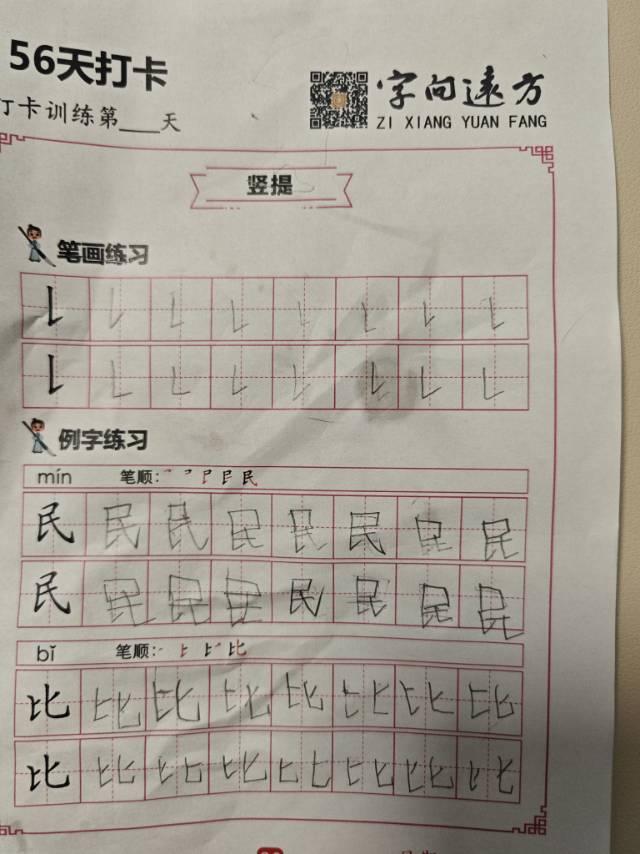 56天打卡
字向远方
打卡训练第___天
ZI XIANG YUAN FANG
竖提
笔画练习
例字练习
mín 笔顺:
民 民 民 民 民 民 民 民
民 民 民 民 民 民 民 民
bǐ 笔顺:
比 比 比 比 比 比 比 比
比 比 比 比 比 比 比 比